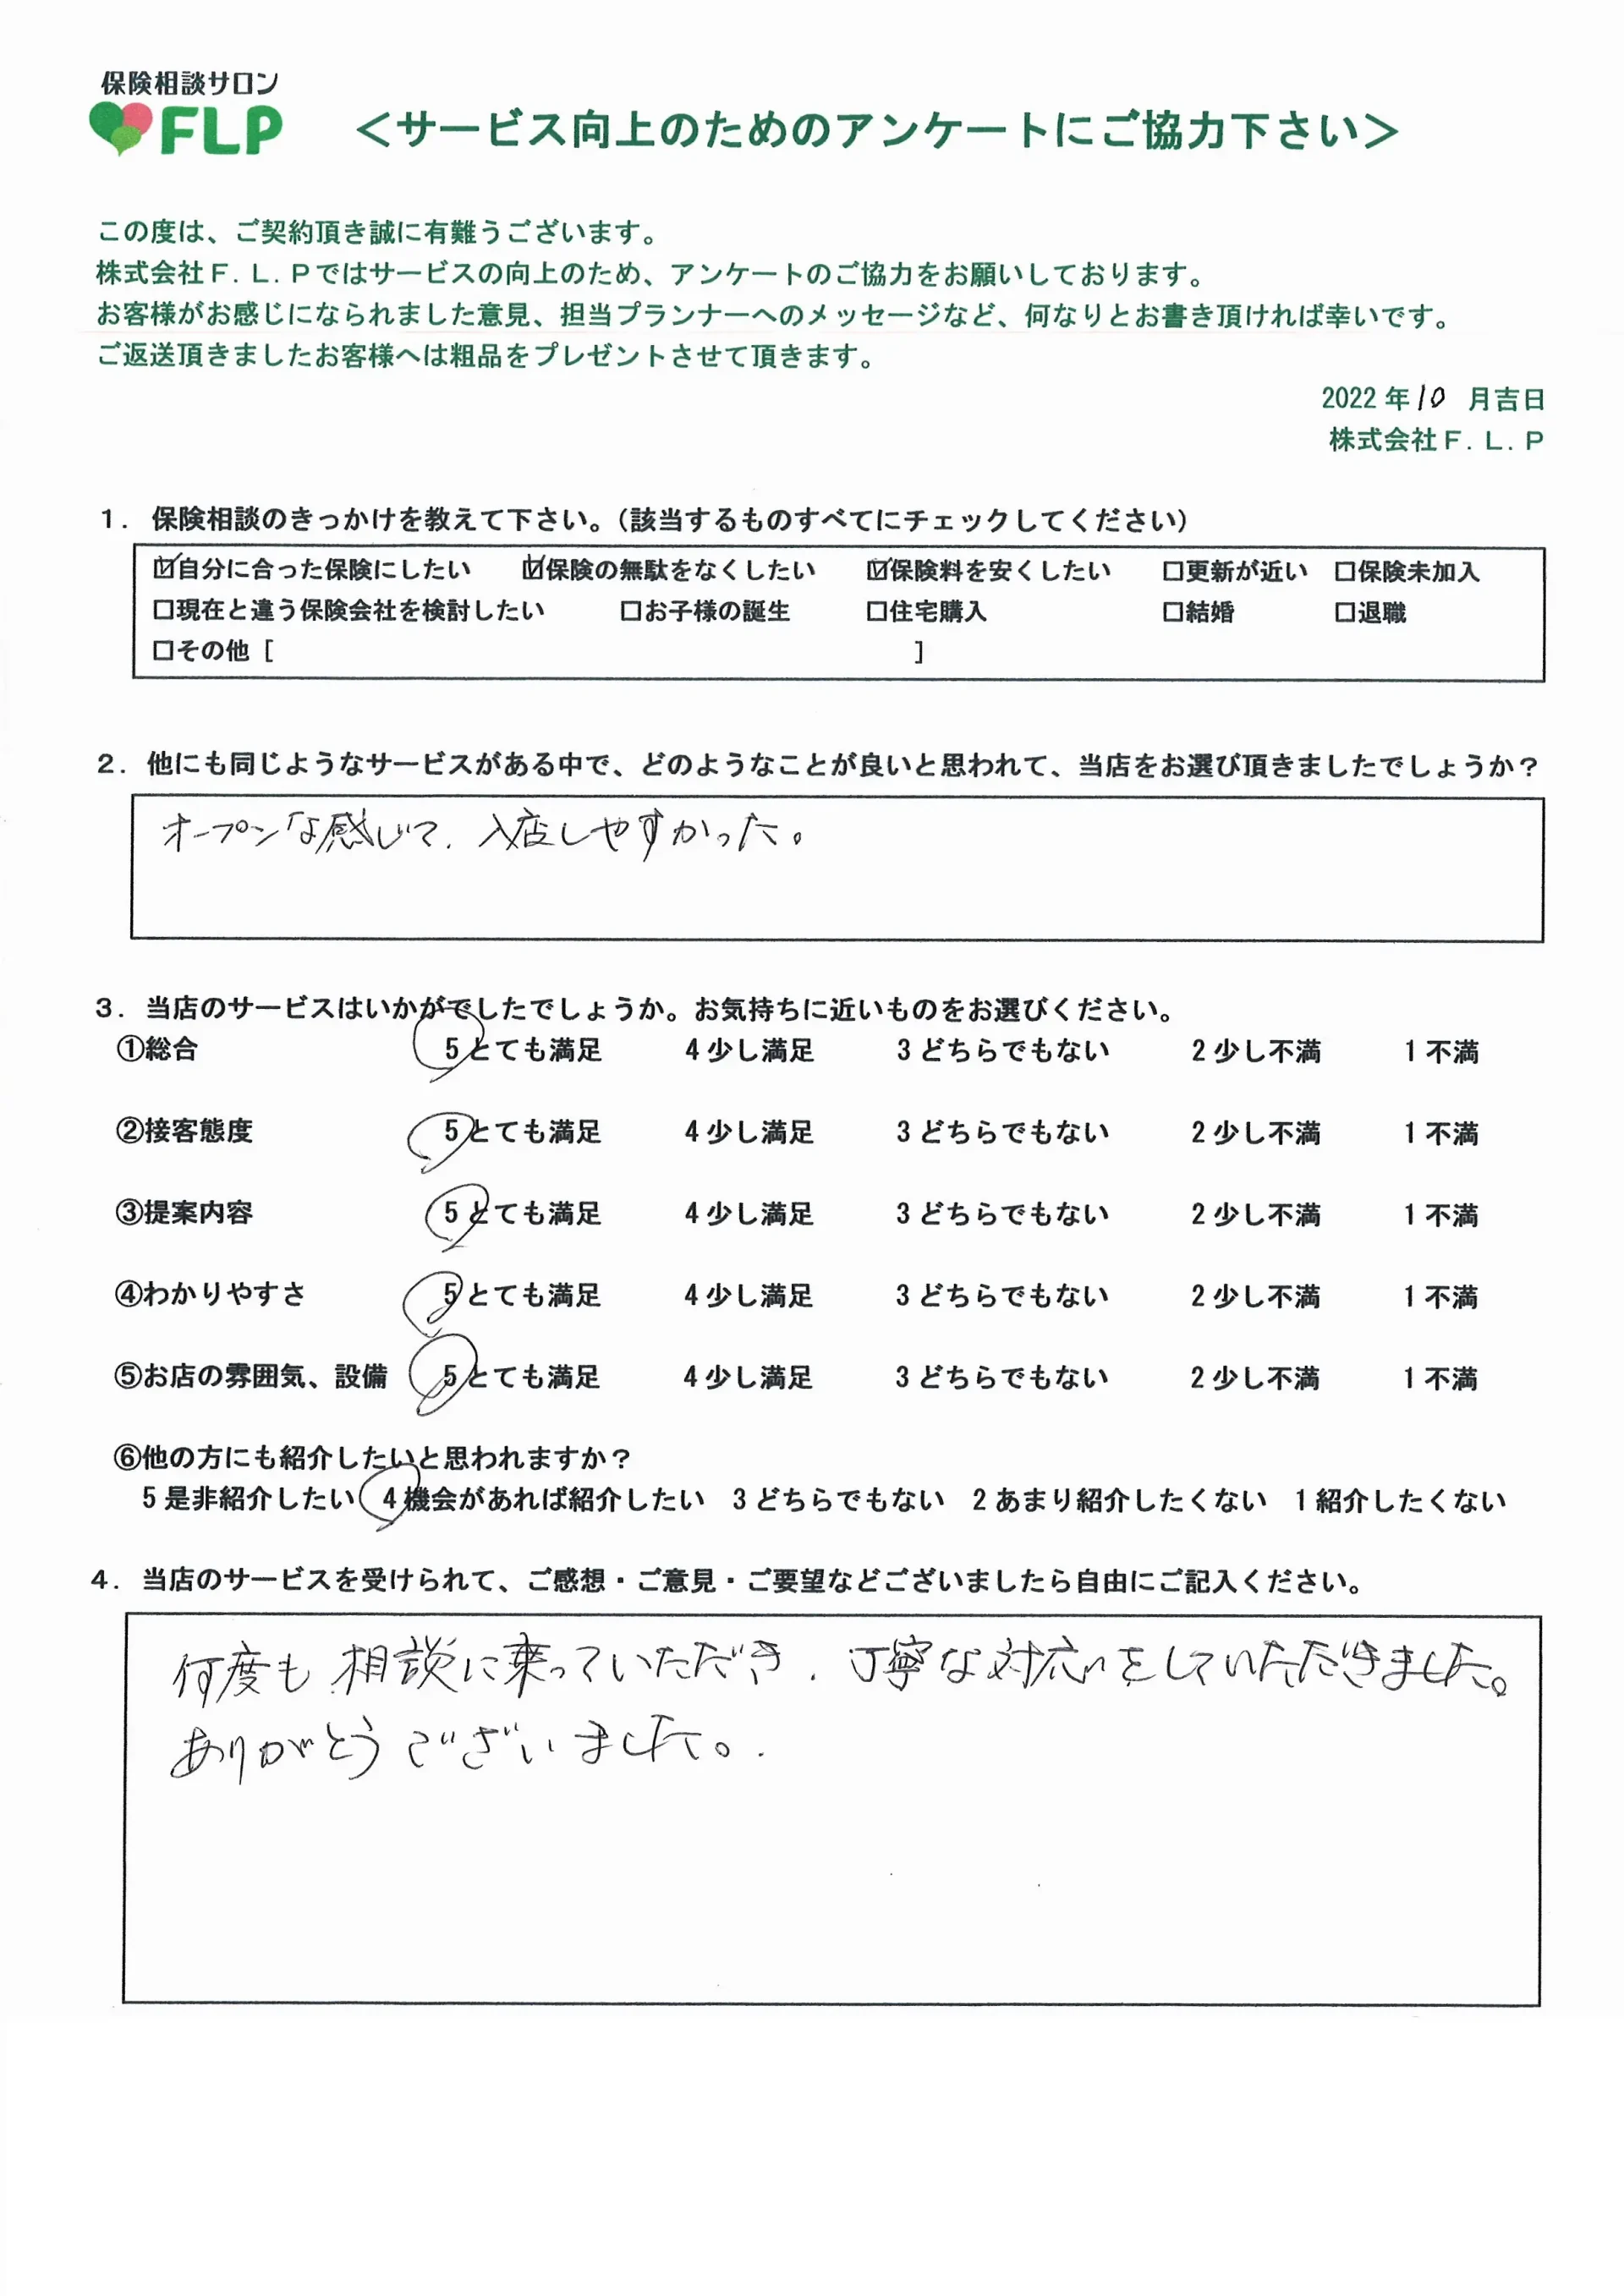 保険相談サロン
FLP
＜サービス向上のためのアンケートにご協力下さい＞
この度は、ご契約頂き誠に有難うございます。
株式会社Ｆ．Ｌ．Ｐではサービスの向上のため、アンケートのご協力をお願いしております。
お客様がお感じになられました意見、担当プランナーへのメッセージなど、何なりとお書き頂ければ幸いです。
ご返送頂きましたお客様へは粗品をプレゼントさせて頂きます。
2022 年 10 月吉日
株式会社Ｆ．Ｌ．Ｐ
１．保険相談のきっかけを教えて下さい。（該当するものすべてにチェックしてください）
☑自分に合った保険にしたい ☑保険の無駄をなくしたい ☑保険料を安くしたい □更新が近い □保険未加入
□現在と違う保険会社を検討したい □お子様の誕生 □住宅購入 □結婚 □退職
□その他［ ］
２．他にも同じようなサービスがある中で、どのようなことが良いと思われて、当店をお選び頂きましたでしょうか？
オープンな感じで、入店しやすかった。
３．当店のサービスはいかがでしたでしょうか。お気持ちに近いものをお選びください。
①総合 5 とても満足 4 少し満足 3 どちらでもない 2 少し不満 1 不満
②接客態度 5 とても満足 4 少し満足 3 どちらでもない 2 少し不満 1 不満
③提案内容 5 とても満足 4 少し満足 3 どちらでもない 2 少し不満 1 不満
④わかりやすさ 5 とても満足 4 少し満足 3 どちらでもない 2 少し不満 1 不満
⑤お店の雰囲気、設備 5 とても満足 4 少し満足 3 どちらでもない 2 少し不満 1 不満
⑥他の方にも紹介したいと思われますか？
5 是非紹介したい 4 機会があれば紹介したい 3 どちらでもない 2 あまり紹介したくない 1 紹介したくない
４．当店のサービスを受けられて、ご感想・ご意見・ご要望などございましたら自由にご記入ください。
何度も相談に乗っていただき、丁寧な対応をしていただきました。
ありがとうございました。